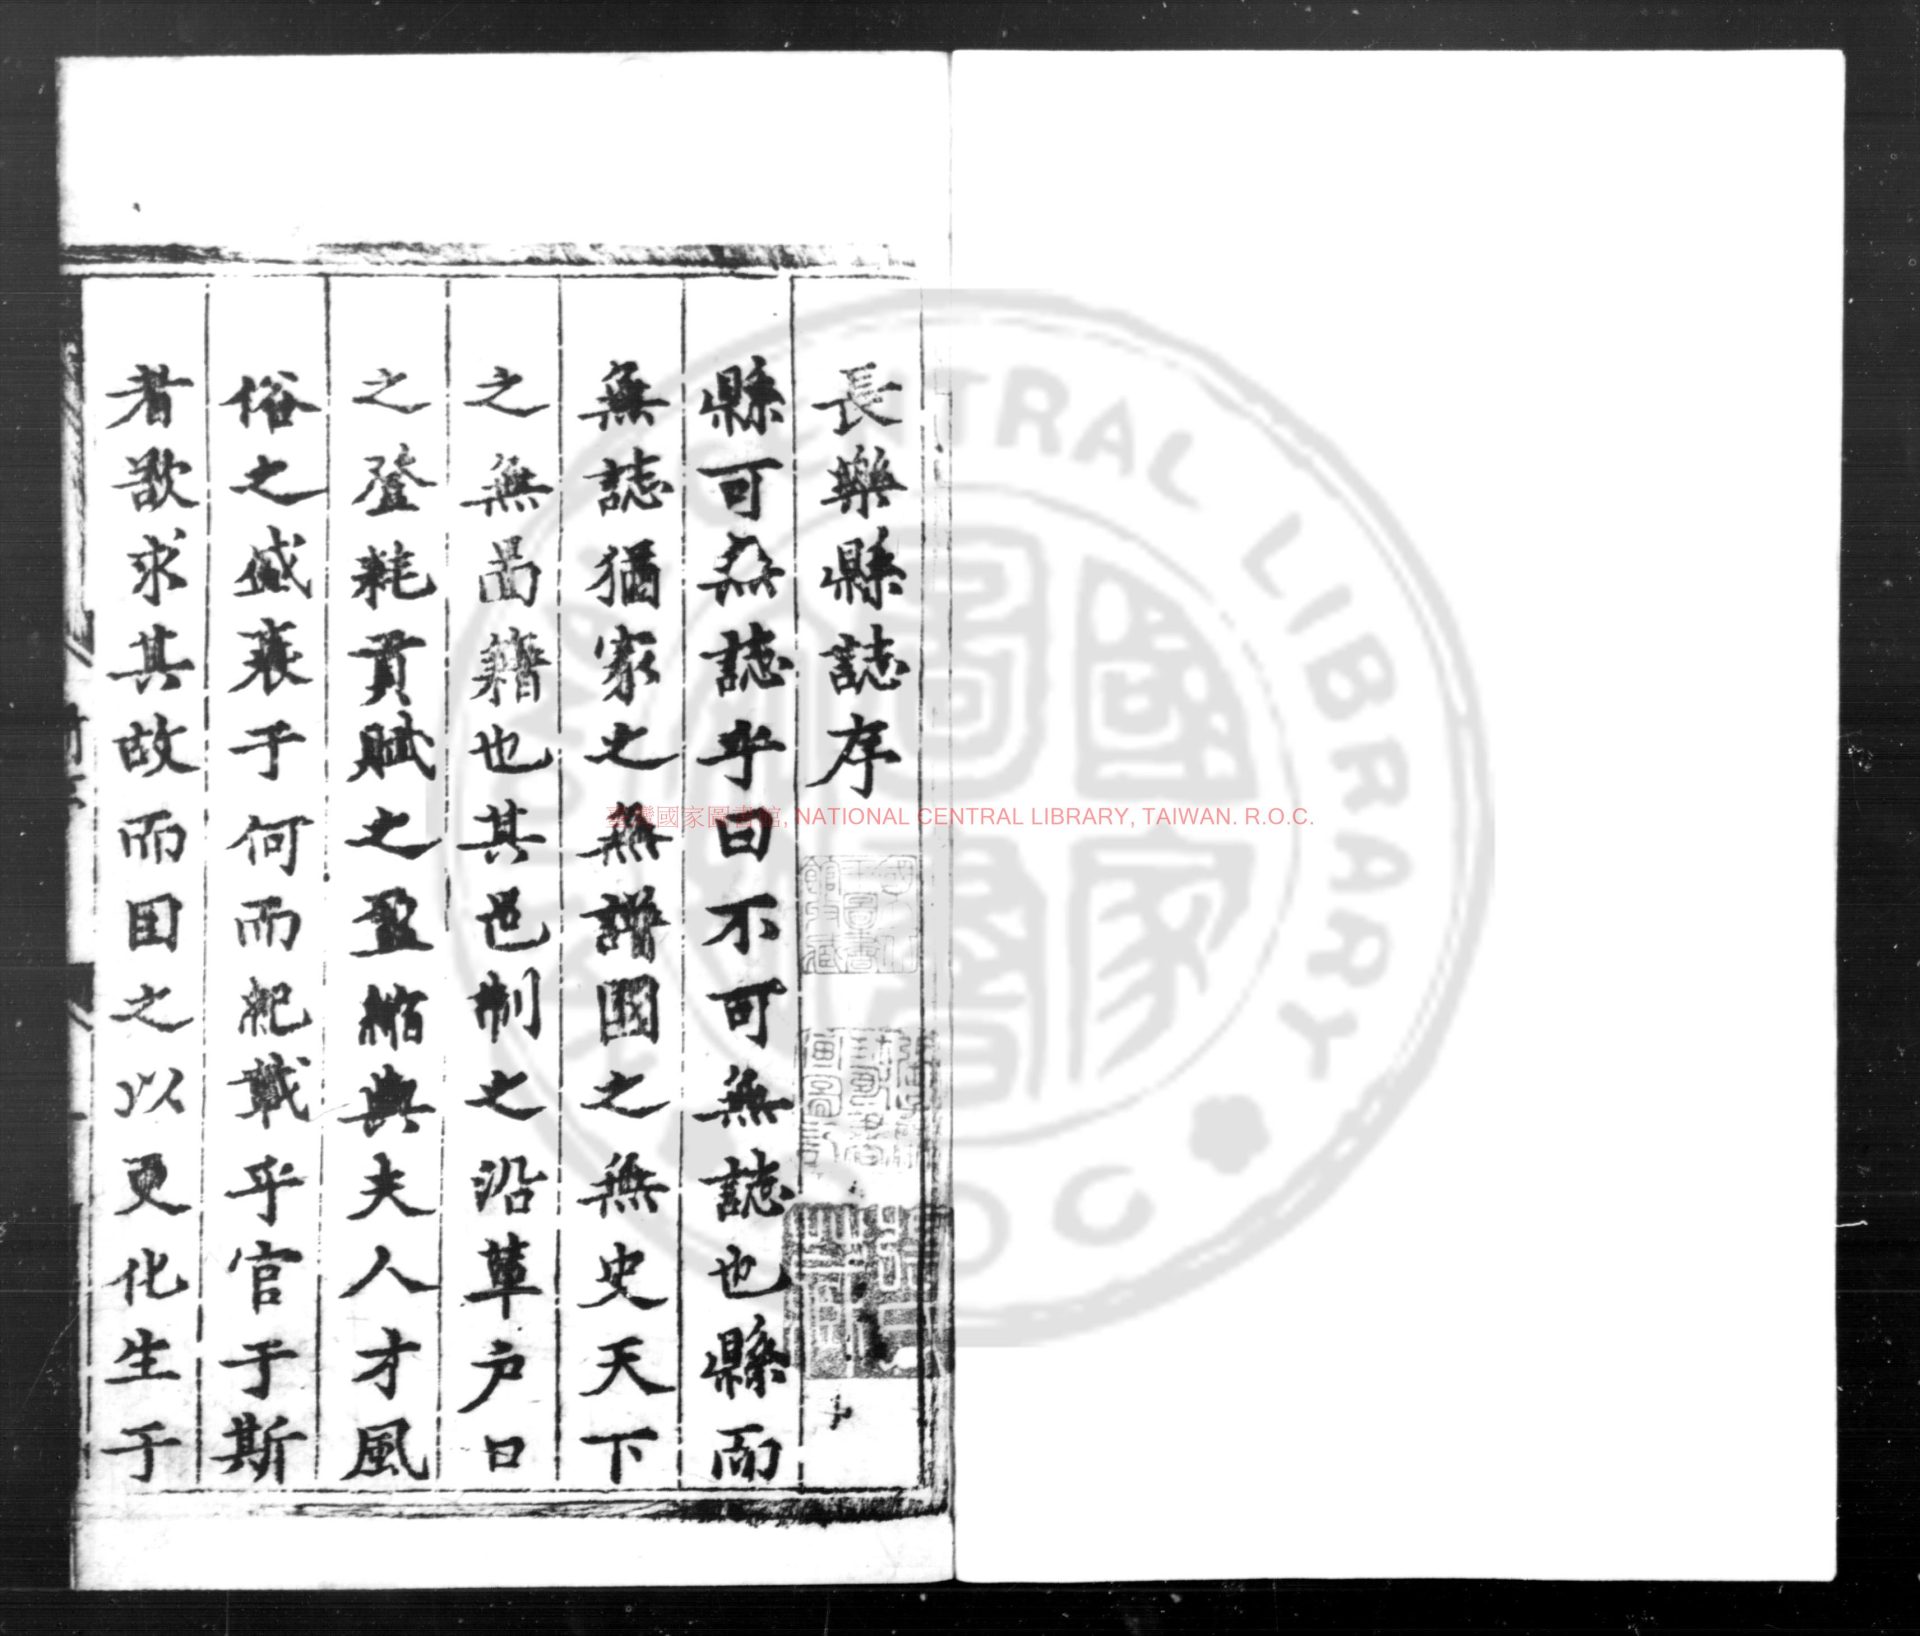 長樂縣誌序
縣可無誌乎曰不可無誌也縣而
無誌猶家之無譜國之無史天下
之無啚籍也其邑制之沿革户口
之登耗貢賦之盈縮與夫人才風
俗之盛衰于何而紀載乎官于斯
者欲求其故而因之以更化生于
臺灣國家圖書館, NATIONAL CENTRAL LIBRARY, TAIWAN. R.O.C.
NATIONAL CENTRAL LIBRARY
R.O.C.
國家圖書